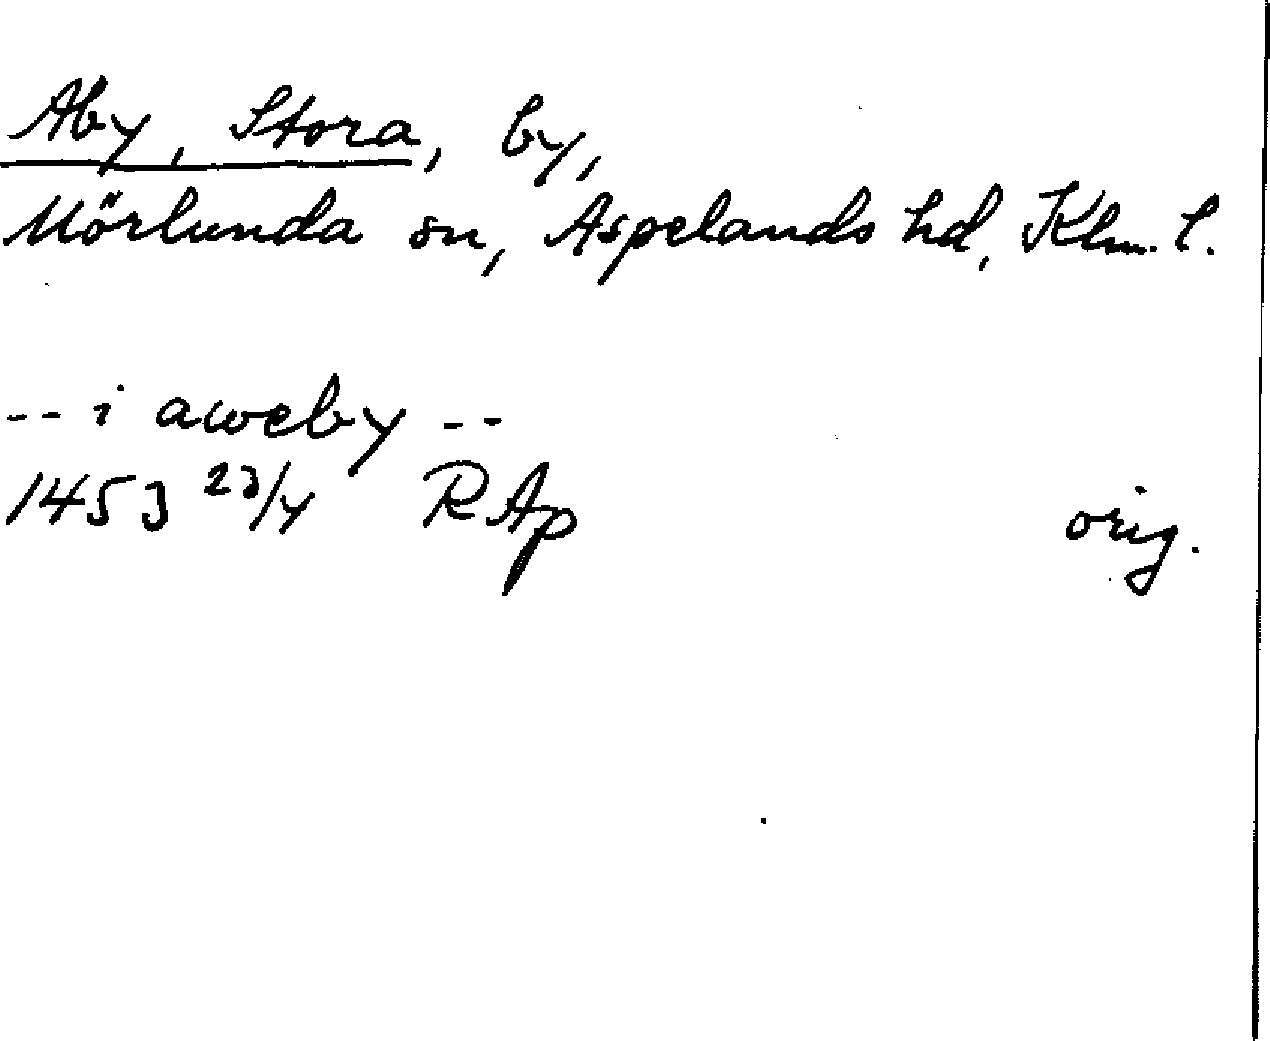 Åby, Stora, by,
Mörlunda sn, Aspelands hd, Klm. l.
-- i aweby --
1453 23/4 RAp orig.